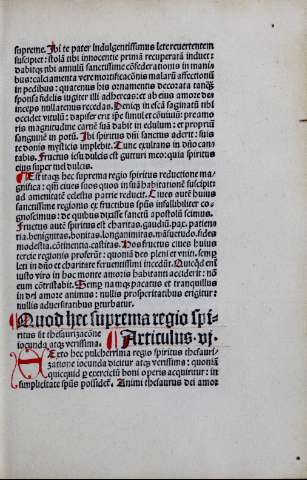 supreme. Ibi te pater indulgentissimus lete reuertentem
suscipiet: stolā tibi innocentie primā recuperatā induet:
dabitqȝ tibi annulū sanctissime cōfederationis in mani
bus: calciamenta veremortificatōnis malarū affectionū
in pedibus: quatenus his ornamentis decorata tanqȝ
sponsa fidelis iugiter illi adhereas: et ab eius amore des
inceps nullatenus recedas. Deniqȝ in escā saginatū tibi
occidet vitulū: dapifer erit ipse simul et cōuiuiū: preamo
ris magnitudine carnē suā dabit in edulium: et propriū
sanguinē in potū. Ibi spiritus dñi sanctus aderit: suis
te donis mysticis implebit. Tunc exultans in dño can
tabis. Fructus iesu dulcis est gutturi meo: quia spiritus
eius super mel dulcis.
Est itaqȝ hec suprema regio spiritus reductione ma
gnifica: qm̄ ciues suos quos in suā habitationē suscipit:
ad amenitatē celestis patrie reducit. Ciues autē huius
sanctissime regionis ex fructibus spūs infallibiliter co
gnoscimus: de quibus dixisse sanctū apostolū scimus.
Fructus autē spiritus est charitas. gaudiū. pax. patien
tia. benignitas. bonitas. longanimitas. māsuetudo. fides
modestia. cōtinentia. castitas. Hos fructus ciues huius
tercie regionis proferūt: quonā deo pleni et viuūt. semp
leti in dño et charitate feruentissimi incedūt. Quicqd em̄
iusto viro in hoc monte amoris habitanti acciderit: nō
eum cōtristabit. Semp namqȝ pacatus et tranquillus
in dei amore animus: nullis prosperitatibus erigitur:
nullis aduersitatibus pturbatur.
Quod hec suprema regio spi-
ritus sit thesaurizacōne
iocunda atqȝ verissima. Articulus. vj.
Certo hec pulcherrima regio spiritus thesauri
zatione iocunda dicitur atqȝ verissima: quoniā
quicquid p exercitiū boni operis acquiritur: in
simplicitate spūs possidet. Animi thesaurus dei amor